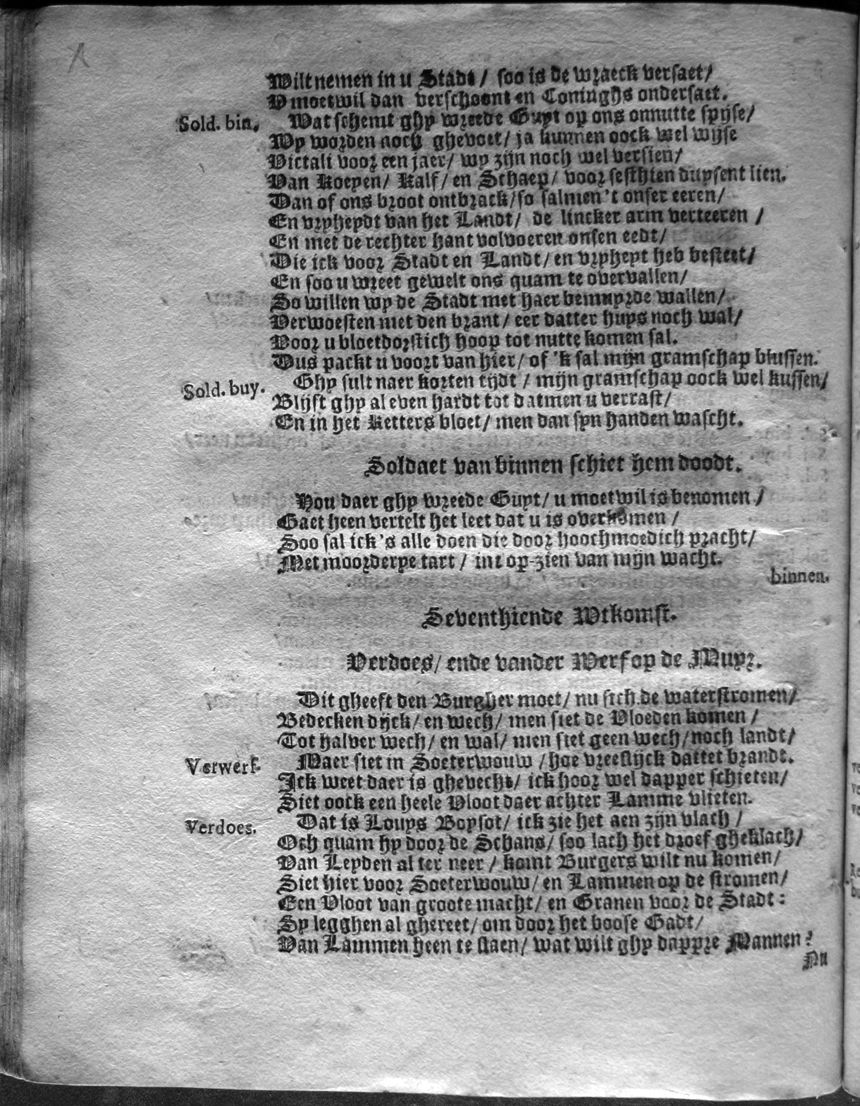 Wilt nemen in u Stadt / soo is de wraeck versaet /
V moetwil dan verschoont en Coninghs ondersaet.
Sold. bin. Wat schemt ghy wreede Guyt op ons onnutte spijse /
Wy worden noch ghevoet / ja kunnen oock wel wijse
Victali voor een jaer / wy zijn noch wel versien /
Van Koeyen / Kalf / en Schaep / voor sesthien duysent lien.
Dan of ons broot ontbrack / so salmen 't onser eeren /
En vryheydt van het Landt / de lincker arm verteeren /
En met de rechter hant volvoeren onsen eedt /
Die ick voor Stadt en Landt / en vryheyt heb besteet /
En soo u wreet gewelt ons quam te overvallen /
So willen wy de Stadt met haer bemuyrde wallen /
Verwoesten met den brant / eer datter huys noch wal /
Voor u bloetdorstich hoop tot nutte komen sal.
Dus packt u voort van hier / of 'k sal mijn gramschap blussen.
Sold. buy. Ghy sult naer korten tijdt / mijn gramschap oock wel kussen /
Blijft ghy al even hardt tot datmen u verrast /
En in het Ketters bloet / men dan syn handen wascht.
Soldaet van binnen schiet hem doodt.
Hou daer ghy wreede Guyt / u moetwil is benomen /
Gaet heen vertelt het leet dat u is overkomen /
Soo sal ick 's alle doen die door hoochmoedich pracht /
Met moorderye tart / int op-zien van mijn wacht.
binnen.
Seventhiende Wtkomst.
Verdoes / ende vander Werf op de Muyr.
Dit gheeft den Burgher moet / nu sich de waterstromen /
Bedecken dijck / en wech / men siet de Vloeden komen /
Tot halver wech / en wal / men siet geen wech / noch landt /
Verwerf. Maer siet in Soeterwouw / hoe vreeslijck dattet brandt.
Ick weet daer is ghevecht / ick hoor wel dapper schieten /
Siet oock een heele Vloot daer achter Lamme vlieten.
Verdoes. Dat is Louys Boysot / ick zie het aen zijn vlach /
Och quam hy door de Schans / soo lach het droef gheklach /
Van Leyden al ter neer / komt Burgers wilt nu komen /
Siet hier voor Soeterwouw / en Lammen op de stromen /
Een Vloot van groote macht / en Granen voor de Stadt :
Sy legghen al ghereet / om door het boose Gadt /
Van Lammen heen te slaen / wat wilt ghy dappre Mannen ?
Nu